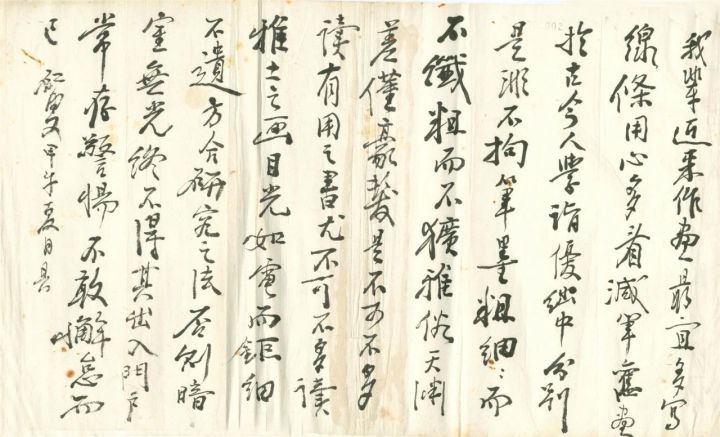 我輩近来作畫最宜多寫
線條用心多看減筆舊畫
於古今人學詣優絀中分別
是非不拘筆墨粗細細而
不纖粗而不獷雅俗天淵
差僅毫髮是不可不多
读有用之書尤不可不多讀
雅士之画目光如電而鉅細
不遺方合研究之法否則暗
室無光終不得其出入門戶
常存警惕不敢懈怠而
已 甲午夏日